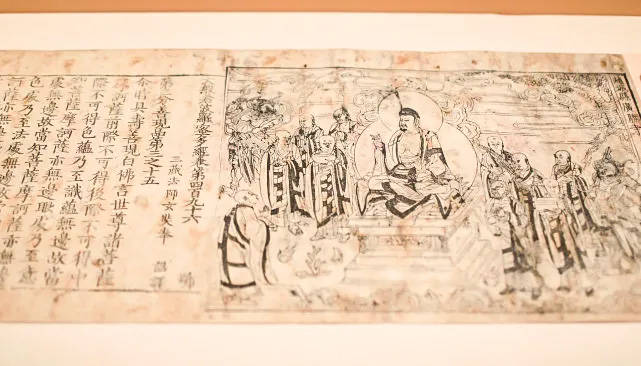 大般若波羅蜜多經卷第四百九十六
三藏法師玄奘奉 詔譯
第三分善現品第三之十五
善現白佛言世尊諸菩薩
前際不可得後際不可得中
際不可得色蘊乃至識蘊無邊故當
知菩薩摩訶薩亦無邊眼處乃至意
處無邊故當知菩薩摩訶薩亦無邊
色處乃至法處無邊故當
訶薩亦無邊